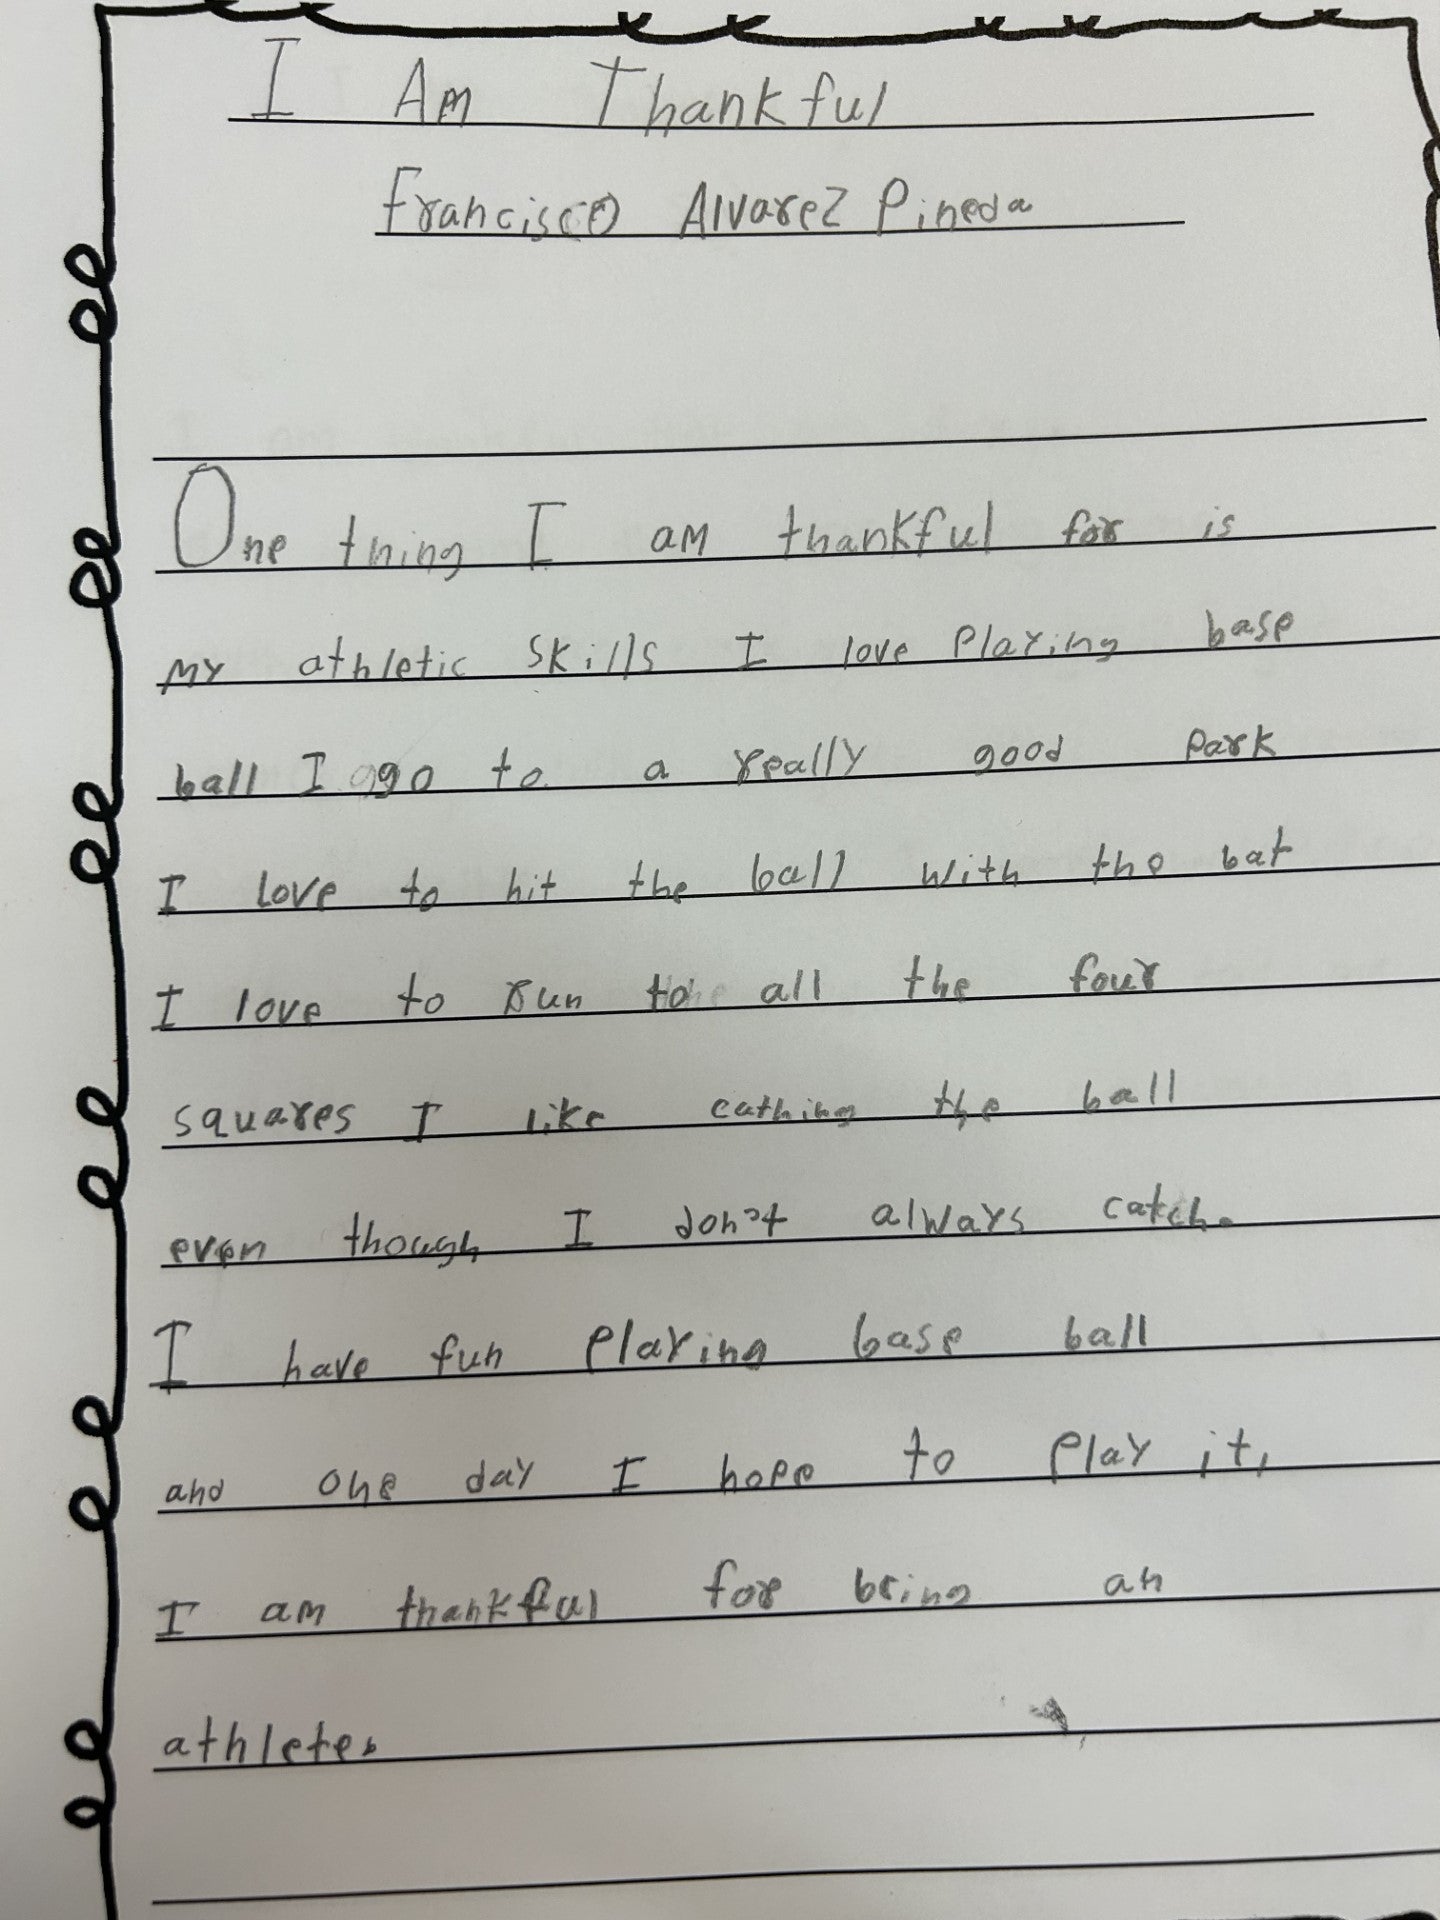 I Am Thankful
Francisco Alvarez Pineda
One thing I am thankful for is
my athletic skills I love Playing base
ball I ggo to a really good Park
I love to hit the ball with the bat
I love to run to all the four
squares I like cathing the ball
even though I don't always catch.
I have fun Playing base ball
and one day I hope to Play it,
I am thankful for being an
athlete.